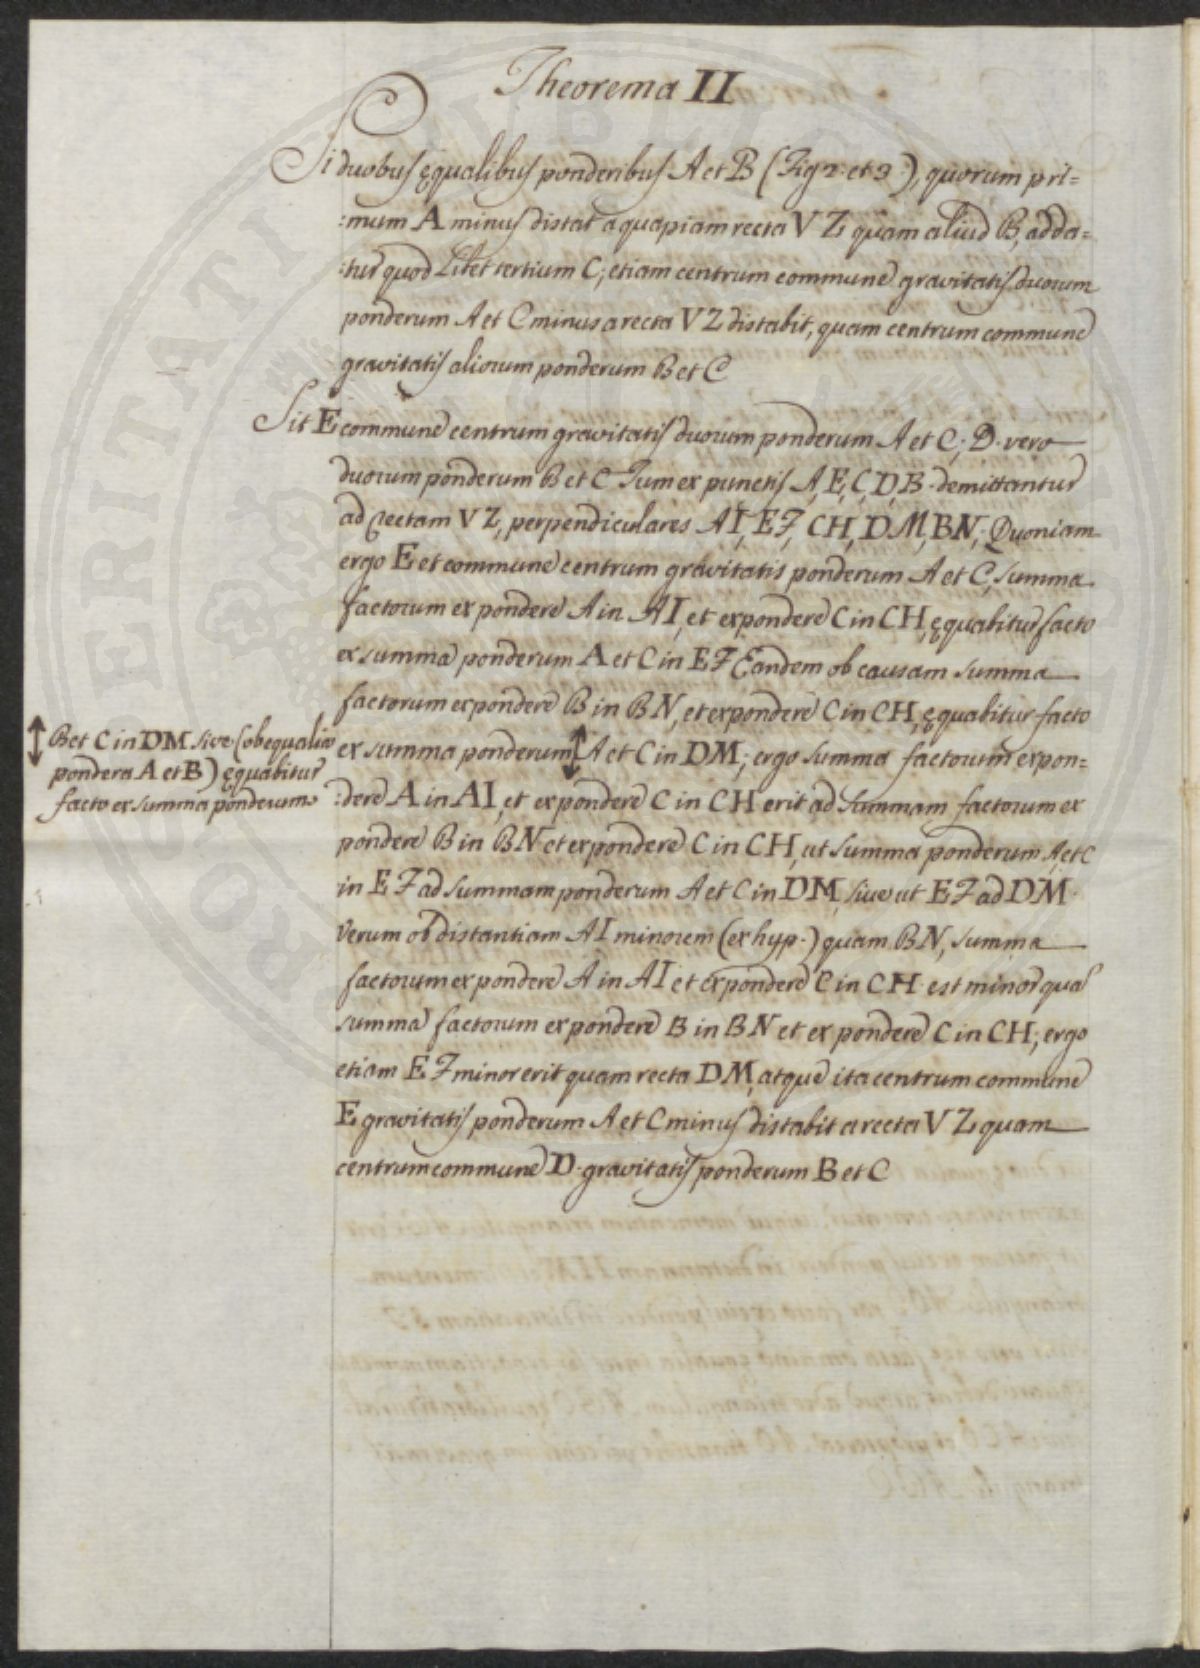 Theorema II
Si duobus ęqualibus ponderibus A et B (Fig 2. et 3.), quorum pri=
:mum A minus distat a quapiam recta V Z quam aliud B, adda=
:tur quod libet tertium C; etiam centrum commune gravitatis duorum
ponderum A et C minus a recta V Z distabit, quam centrum commune
gravitatis aliorum ponderum B et C
Sit E commune centrum gravitatis duorum ponderum A et C; D. vero
duorum ponderum B et C Tum ex punctis A, E, C, D, B. demittantur
ad rectam V Z, perpendiculares AI, EF, CH, DM, BN; Quoniam
ergo E et commune centrum gravitatis ponderum A et C, summa
factorum ex pondere A in AI, et ex pondere C in CH, ęquabitur facto
ex summa ponderum A et C in EF Eandem ob causam summa
factorum ex pondere B in BN, et ex pondere C in CH, ęquabitur facto
ex summa ponderum ↕ A et C in DM; ergo summa factorum ex pon=
:dere A in AI, et ex pondere C in CH erit ad summam factorum ex
pondere B in BN et ex pondere C in CH, ut summa ponderum A et C
in EF ad summam ponderum A et C in DM, sive ut EF ad DM.
Verum ob distantiam AI minorem (ex hyp.) quam BN, summa
factorum ex pondere A in AI et ex pondere C in CH est minor quā
summa factorum ex pondere B in BN et ex pondere C in CH; ergo
etiam EF minor erit quam recta DM, atque ita centrum commune
E gravitatis ponderum A et C minus distabit a recta V Z quam
centrum commune D. gravitatis ponderum B et C
↕ B et C in DM sive (ob equalia
pondera A et B) ęquabitur
facto ex summa ponderum